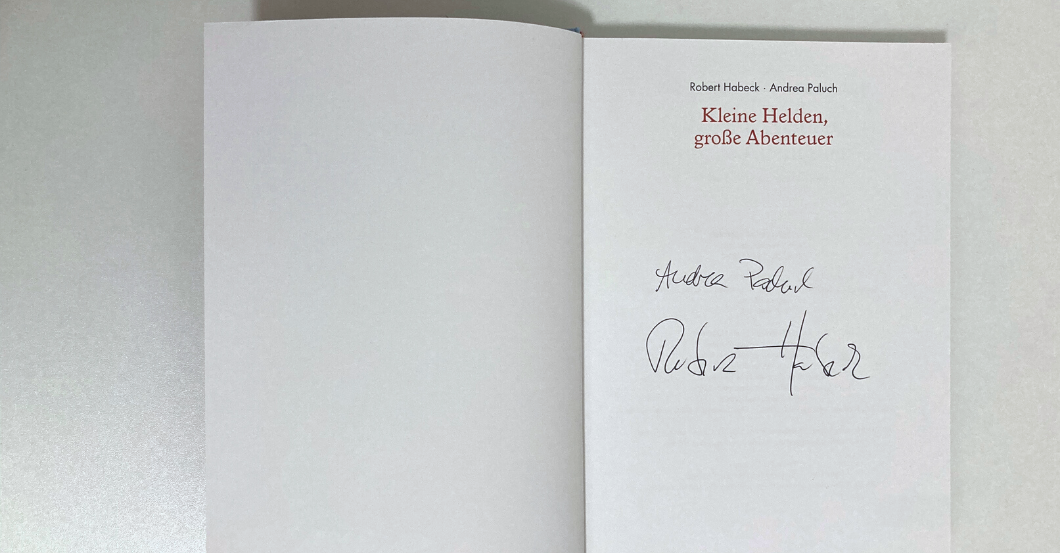 Robert Habeck · Andrea Paluch
Kleine Helden,
große Abenteuer
Andrea Paluch
Robert Habeck